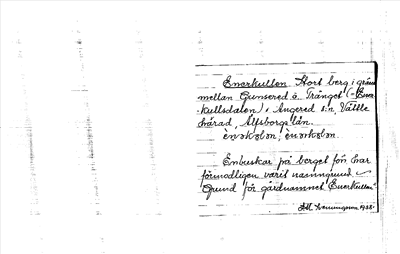 Enerkullen Stort berg i gräns
mellan Gunsered o. Tränget (=Ener-
kullsdalen) i Angered s:n, Vättle
härad, Älfsborgs län.
Enbuskar på berget fön har
förmodligen varit namngrund.
Grund för gårdnamnet "Enerkullen"
1938.